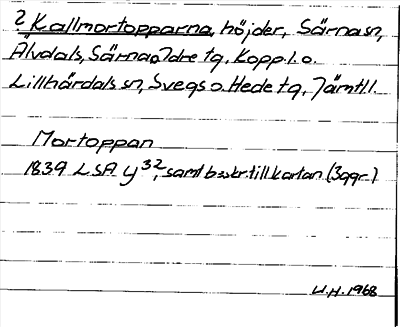 2 Kallmortopparna, höjder, Särna sn,
Älvdals, Särna o. Idre tg, Kopp.l. o.
Lillhärdals sn, Svegs o. Hede tg, Jämtl.l.
Mortoppan
1839 LSA y 32, samt beskr. till kartan (3 ggr)
U.H. 1968